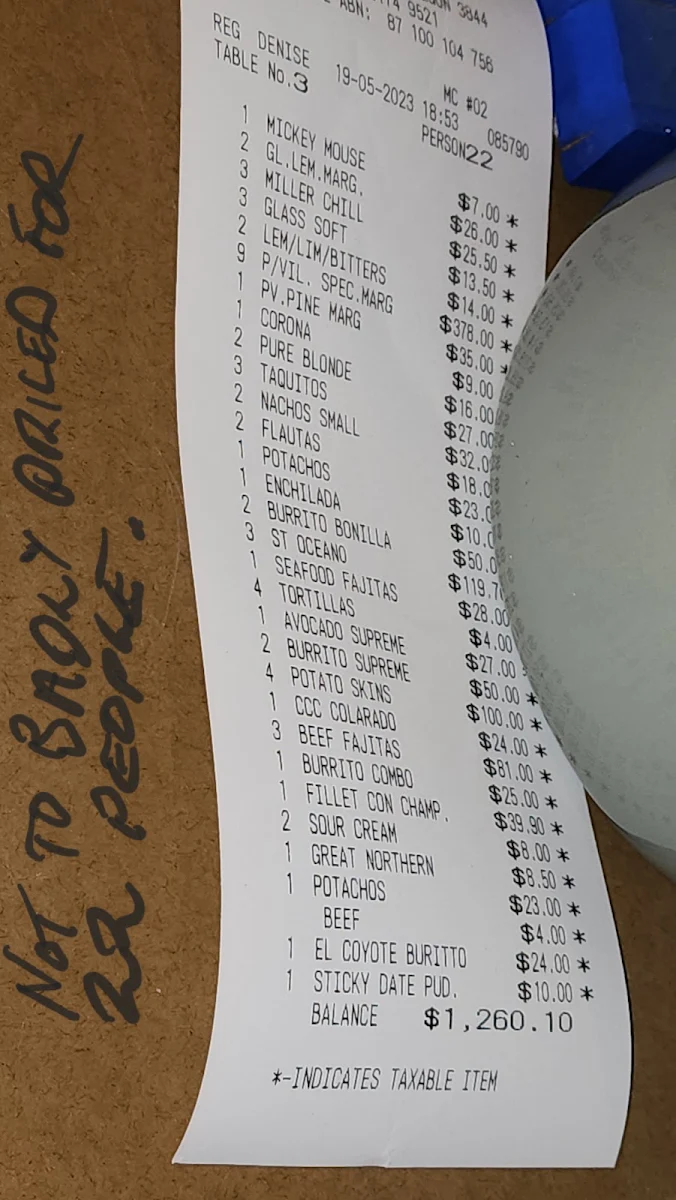 3844
9521
ABN: 87 100 104 756
MC #02
REG DENISE 19-05-2023 18:53 085790
TABLE No.3 PERSON22
1 MICKEY MOUSE $7.00 *
2 GL.LEM.MARG. $26.00 *
3 MILLER CHILL $25.50 *
3 GLASS SOFT $13.50 *
2 LEM/LIM/BITTERS $14.00 *
9 P/VIL. SPEC.MARG $378.00 *
1 PV.PINE MARG $35.00 *
1 CORONA $9.00
2 PURE BLONDE $16.00
3 TAQUITOS $27.00
2 NACHOS SMALL $32.0
2 FLAUTAS $18.0
1 POTACHOS $23.
1 ENCHILADA $10.
2 BURRITO BONILLA $50.0
3 ST OCEANO $119.7
1 SEAFOOD FAJITAS $28.00
4 TORTILLAS $4.00
1 AVOCADO SUPREME $27.00
2 BURRITO SUPREME $50.00 *
4 POTATO SKINS $100.00 *
1 CCC COLARADO $24.00 *
3 BEEF FAJITAS $81.00 *
1 BURRITO COMBO $25.00 *
1 FILLET CON CHAMP. $39.90 *
2 SOUR CREAM $8.00 *
1 GREAT NORTHERN $8.50 *
1 POTACHOS $23.00 *
BEEF $4.00 *
1 EL COYOTE BURITTO $24.00 *
1 STICKY DATE PUD. $10.00 *
BALANCE $1,260.10
*-INDICATES TAXABLE ITEM
NOT TO BADLY PRICED FOR
22 PEOPLE.